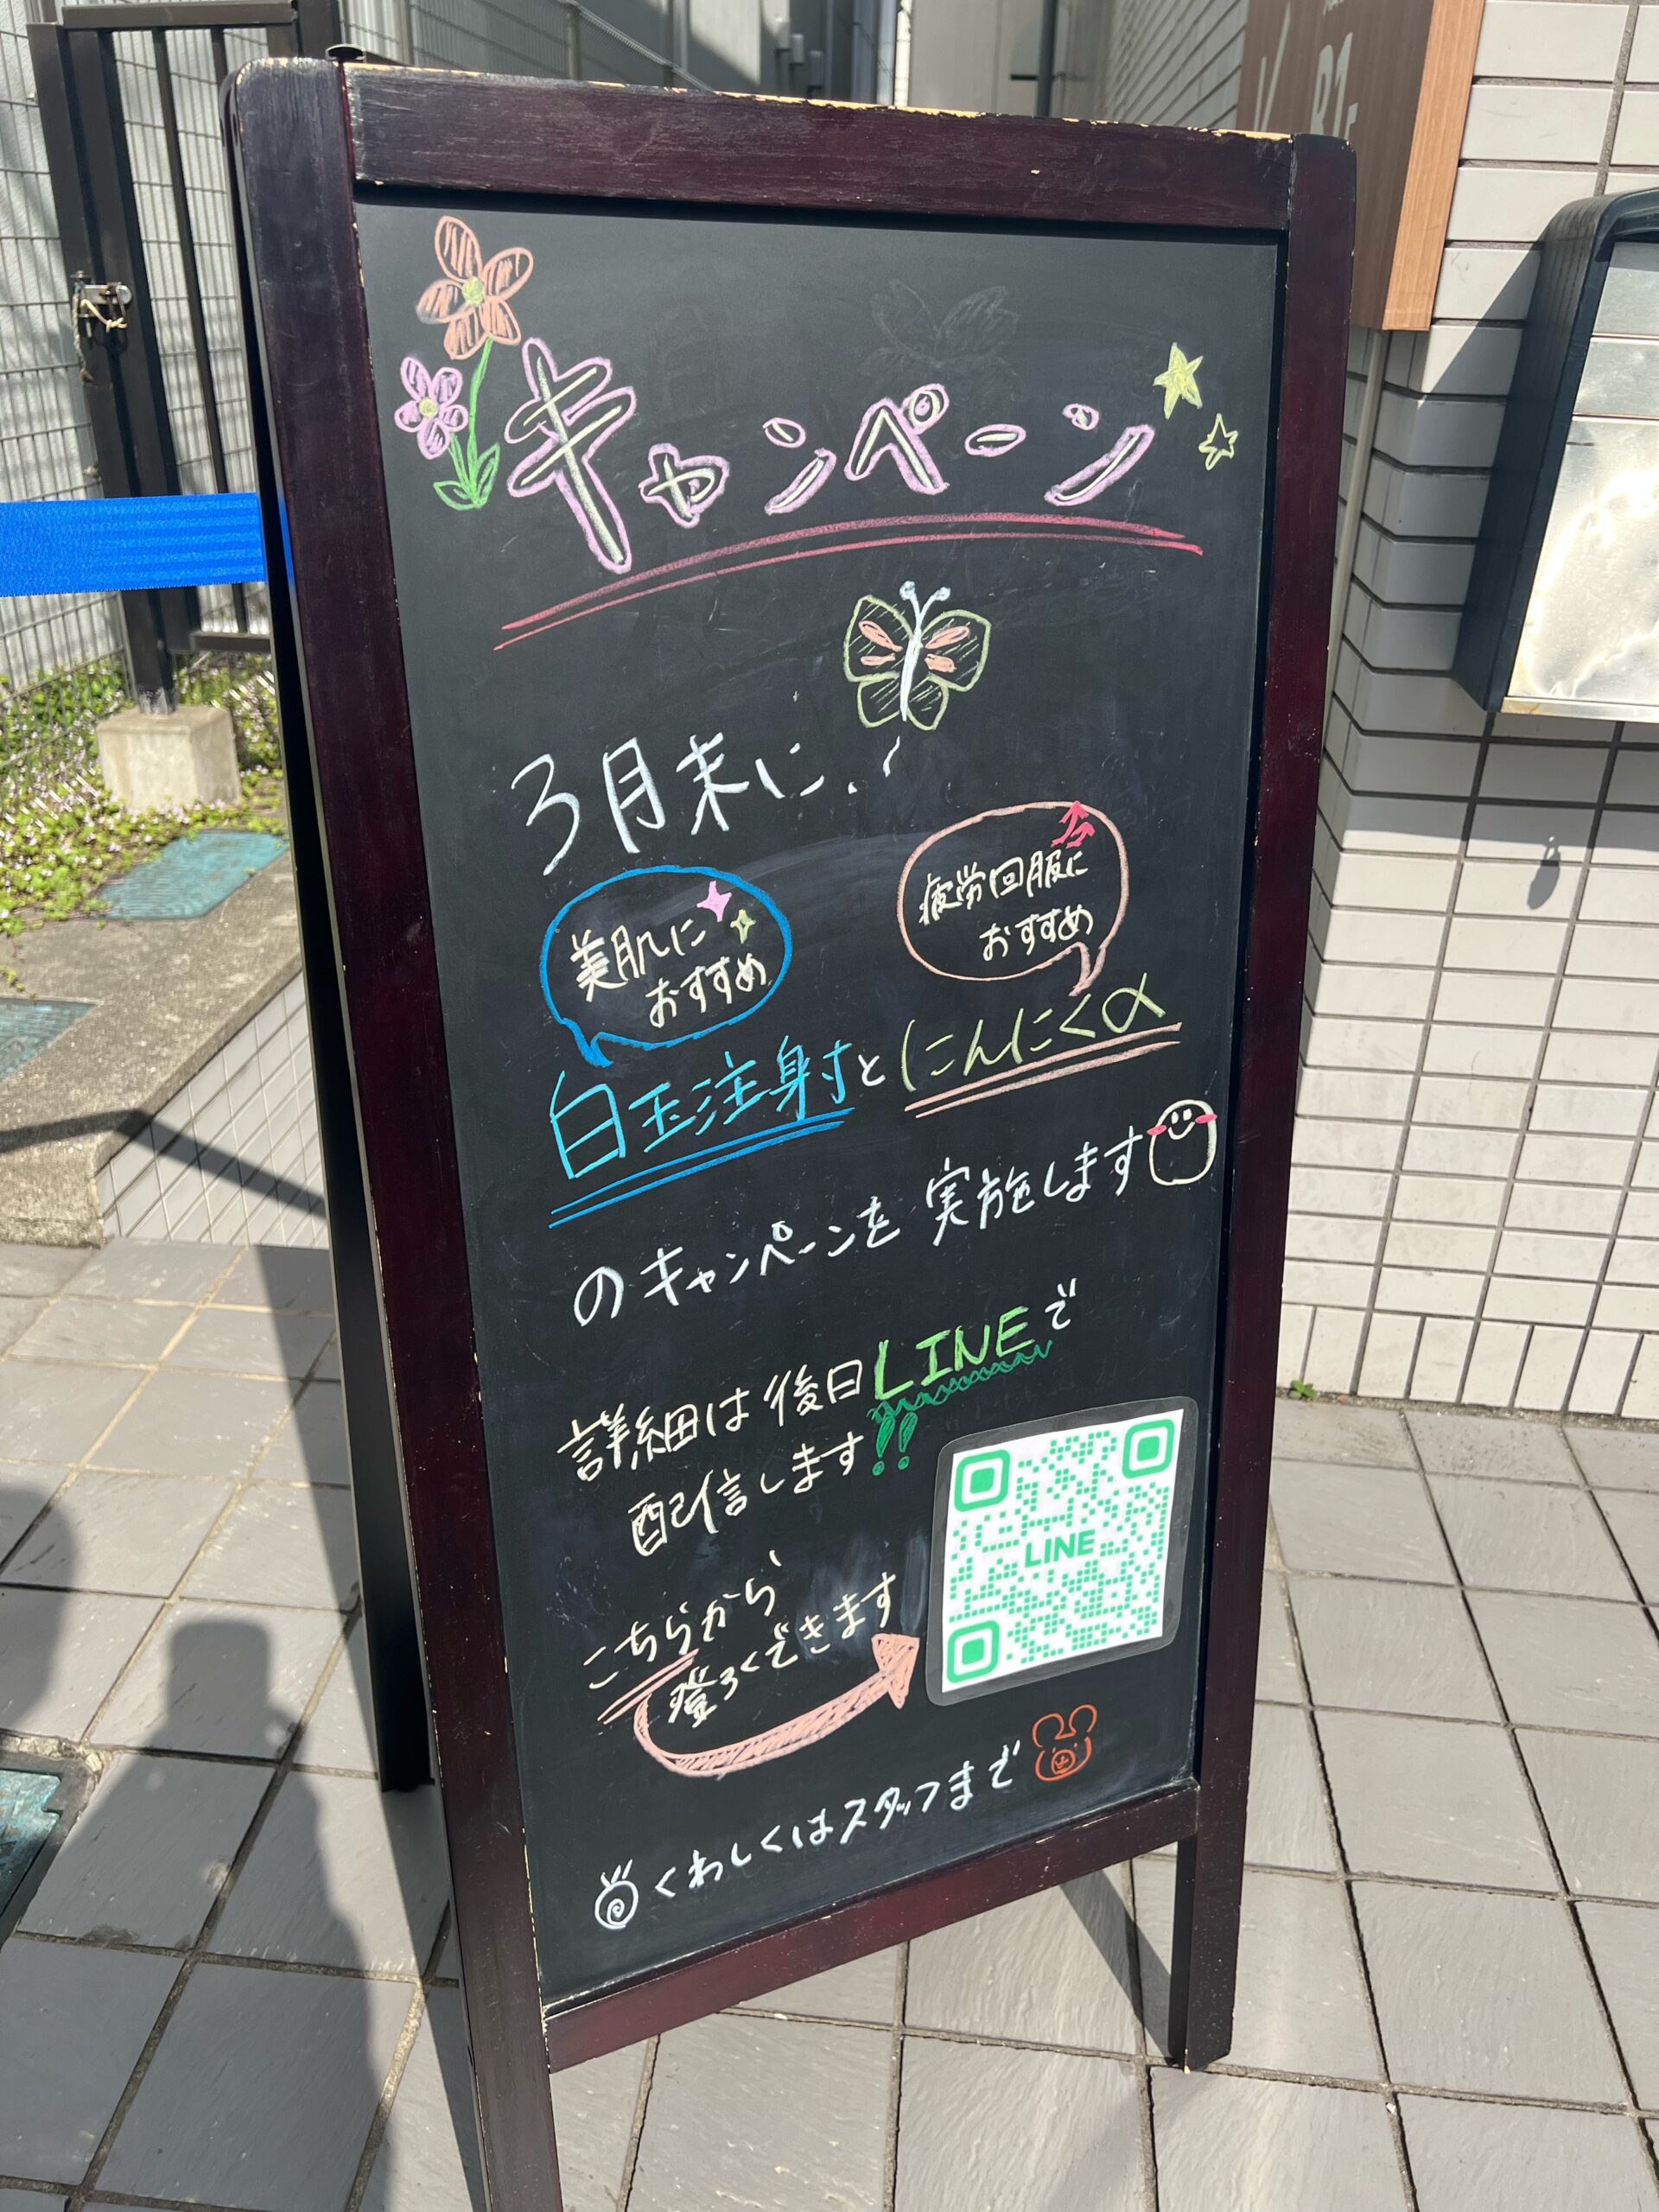 キャンペーン
3月末に、
美肌に
おすすめ
疲労回服に
おすすめ
白玉注射とにんにくα
のキャンペーンを実施します
詳細は後日LINEで
配信します!!
こちらから
登ろくできます
LINE
くわしくはスタッフまで
B1F